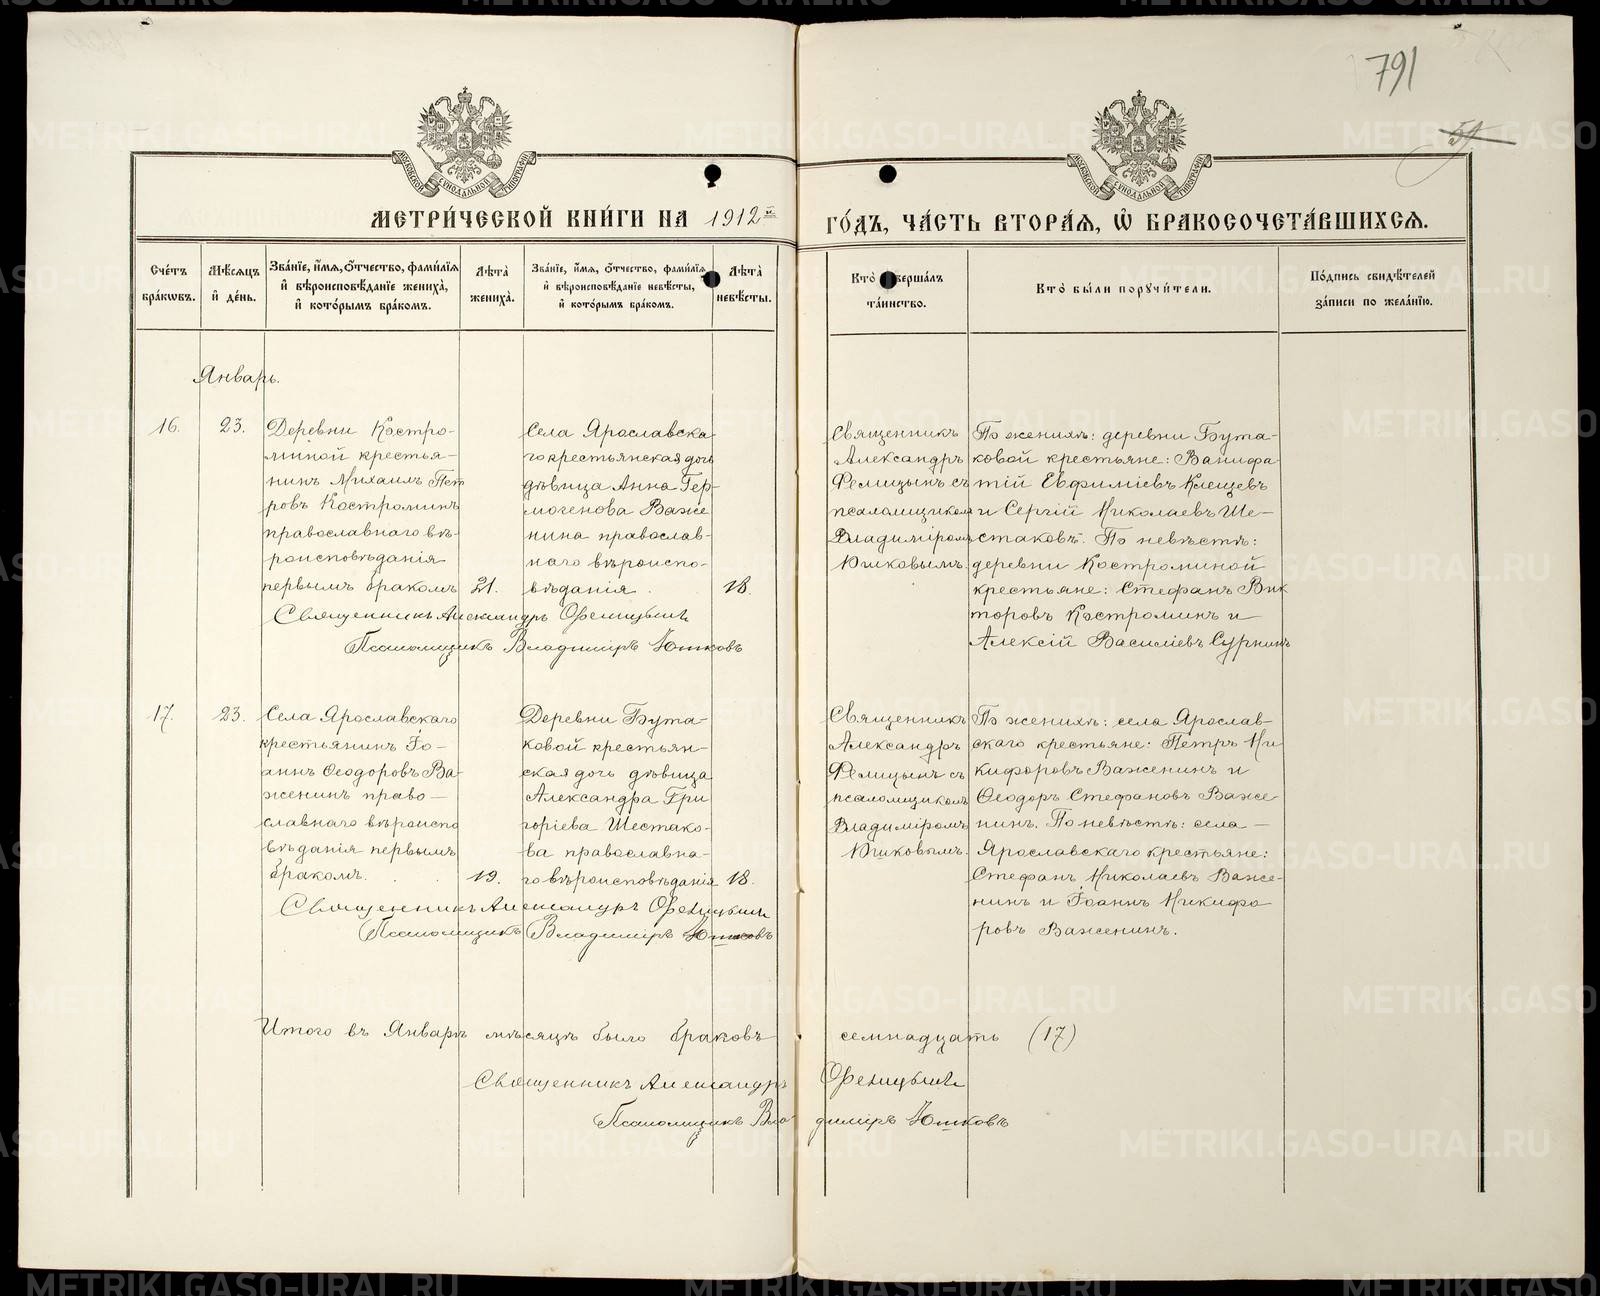 791
59
МОСКОВСКОЙ СѴНОДАЛЬНОЙ ТИПОГРАФІИ
МОСКОВСКОЙ СѴНОДАЛЬНОЙ ТИПОГРАФІИ
МЕТРИ́ЧЕСКОЙ КНИ́ГИ НА 1912й ГО́ДЪ, ЧА́СТЬ ВТОРА́Я, Ѡ҆ БРАКОСОЧЕТА́ВШИХСЯ.
Сче́тъ бра́кѡвъ.
Мѣ́сяцъ и҆ де́нь.
Зва́нїе, и҆́мя, ѻ҆́тчество, фами́лїя и҆ вѣроисповѣ́данїе жениха̀, и҆ кото́рымъ бра́комъ.
Лѣ́та̀ жениха̀.
Зва́нїе, и҆́мя, ѻ҆́тчество, фами́лїя и҆ вѣроисповѣ́данїе невѣ́сты, и҆ кото́рымъ бра́комъ.
Лѣ́та̀ невѣ́сты.
Кто̀ соверша́лъ та́инство.
Кто̀ бы́ли порꙋчи́тели.
По́дпись свидѣ́телей за́писи по жела́нїю.
Январь.
16.
23.
Деревни Костро-
миной крестья-
нинъ Михаилъ Пет
ровъ Костроминъ
православнаго вѣ-
роисповѣданія
первымъ бракомъ
21.
Села Ярославска
го крестьянская дочь
дѣвица Анна Гер-
могенова Важе
нина православ-
наго вѣроиспо-
вѣданія.
18.
Священникъ
Александръ
Фелицынъ съ
псаломщикомъ
Владиміромъ
Юшковымъ.
По женихѣ: деревни Бута-
ковой крестьяне: Ванифа
тій Евфиміевъ Клещевъ
и Сергій Николаевъ Ше-
стаковъ. По невѣстѣ:
деревни Костроминой
крестьяне: Стефанъ Вик
торовъ Костроминъ и
Алексій Василіевъ Суринъ
Священникъ Александръ Фелицынъ
Псаломщикъ Владиміръ Юшковъ
17.
23.
Села Ярославскаго
крестьянинъ Іо-
аннъ Ѳеодоровъ Ва-
женинъ право-
славнаго вѣроиспо
вѣданія первымъ
бракомъ.
19.
Деревни Бута-
ковой крестьян-
ская дочь дѣвица
Александра Гри
горіева Шестако-
ва православна-
го вѣроисповѣданія
18.
Священникъ
Александръ
Фелицынъ съ
псаломщикомъ
Владиміромъ
Юшковымъ.
По женихѣ: села Ярослав-
скаго крестьяне: Петръ Ни
кифоровъ Важенинъ и
Ѳеодоръ Стефановъ Важе
нинъ. По невѣстѣ: села
Ярославскаго крестьяне:
Стефанъ Николаевъ Важе-
нинъ и Іоаннъ Никифо
ровъ Важенинъ.
Священникъ Александръ Фелицынъ
Псаломщикъ Владиміръ Юшковъ
Итого въ Январѣ мѣсяцѣ было браковъ семнадцать (17)
Священникъ Александръ Фелицынъ
Псаломщикъ Владиміръ Юшковъ
METRIKI.GASO-URAL.RU